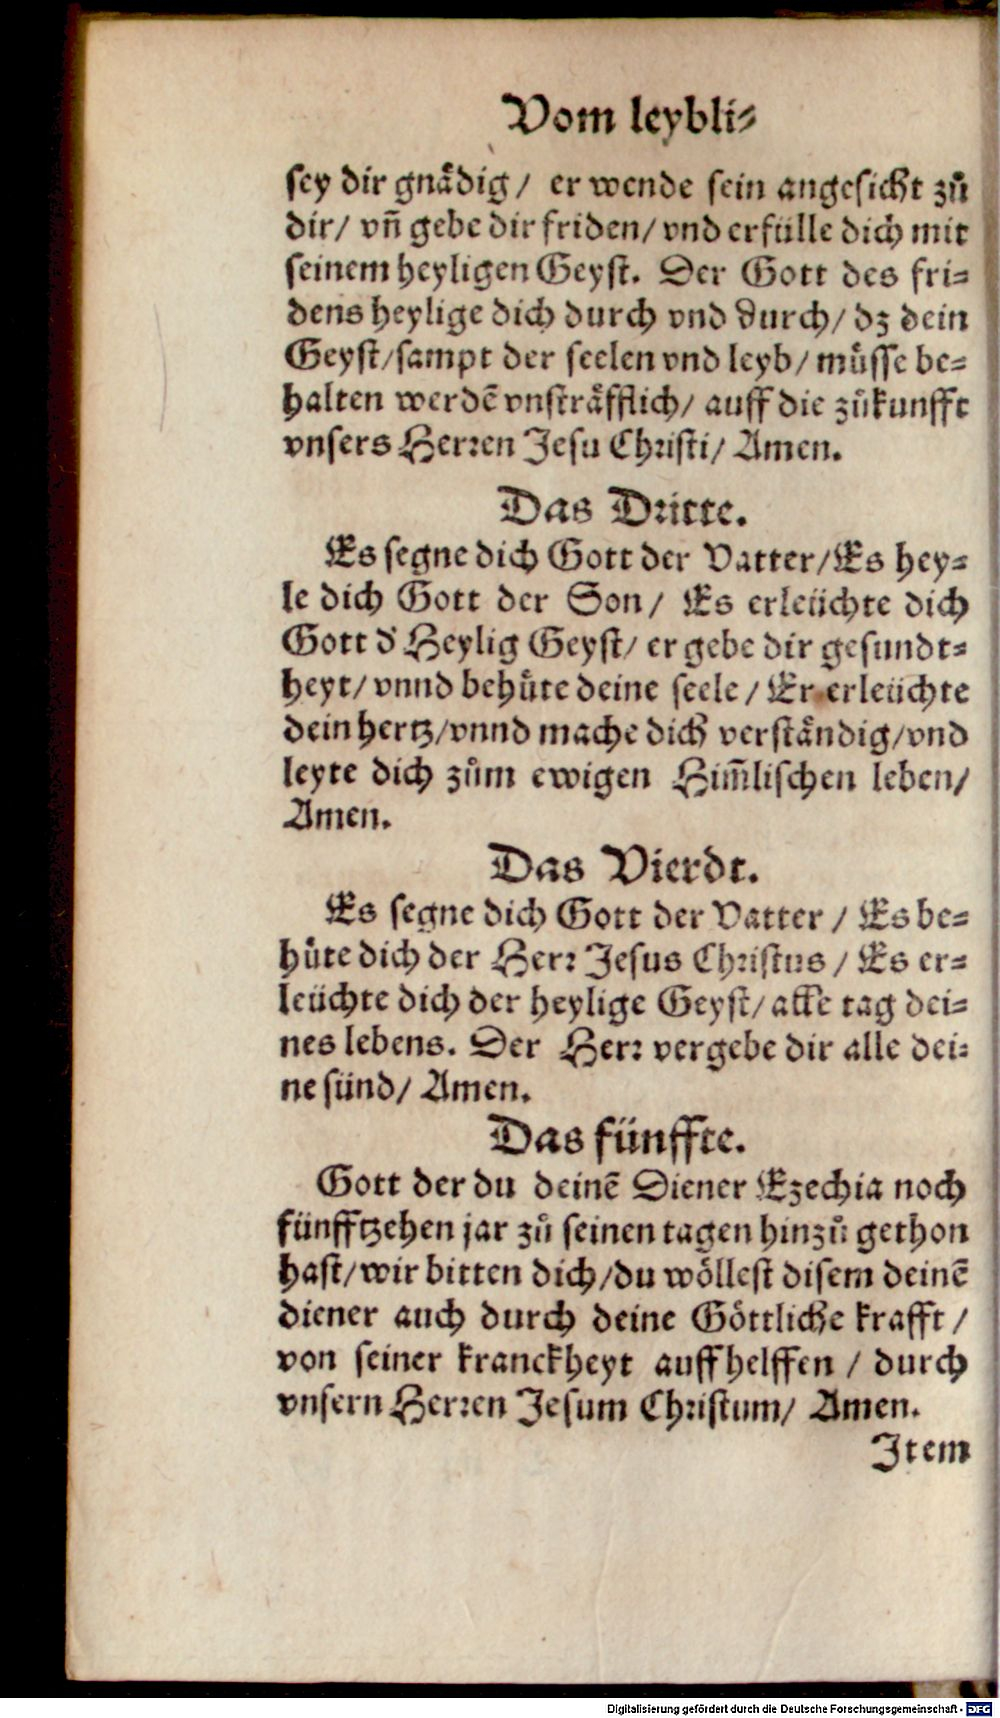 Vom leybli⸗
sey dir gnaͤdig / er wende sein angesicht zuͦ
dir / vn̄ gebe dir friden / vnd erfülle dich mit
seinem heyligen Geyst. Der Gott des fri⸗
dens heylige dich durch vnd durch / dz dein
Geyst / sampt der seelen vnd leyb / muͤsse be⸗
halten werdē vnstraͤfflich / auff die zuͦkunfft
vnsers Herren Jesu Christi / Amen.
Das Dritte.
Es segne dich Gott der Vatter / Es hey⸗
le dich Gott der Son / Es erleüchte dich
Gott d' Heylig Geyst / er gebe dir gesundt⸗
heyt / vnnd behuͤte deine seele / Er erleüchte
dein hertz / vnnd mache dich verstaͤndig / vnd
leyte dich zuͦm ewigen Him̄lischen leben /
Amen.
Das Vierdt.
Es segne dich Gott der Vatter / Es be⸗
huͤte dich der Herr Jesus Christus / Es er⸗
leüchte dich der heylige Geyst / alle tag dei⸗
nes lebens. Der Herr vergebe dir alle dei⸗
ne sünd / Amen.
Das fünffte.
Gott der du deinē Diener Ezechia noch
fünfftzehen jar zuͦ seinen tagen hinzuͦ gethon
hast / wir bitten dich / du woͤllest disem deinē
diener auch durch deine Goͤttliche krafft /
von seiner kranckheyt auffhelffen / durch
vnsern Herren Jesum Christum / Amen.
Item
Digitalisierung gefördert durch die Deutsche Forschungsgemeinschaft - DFG